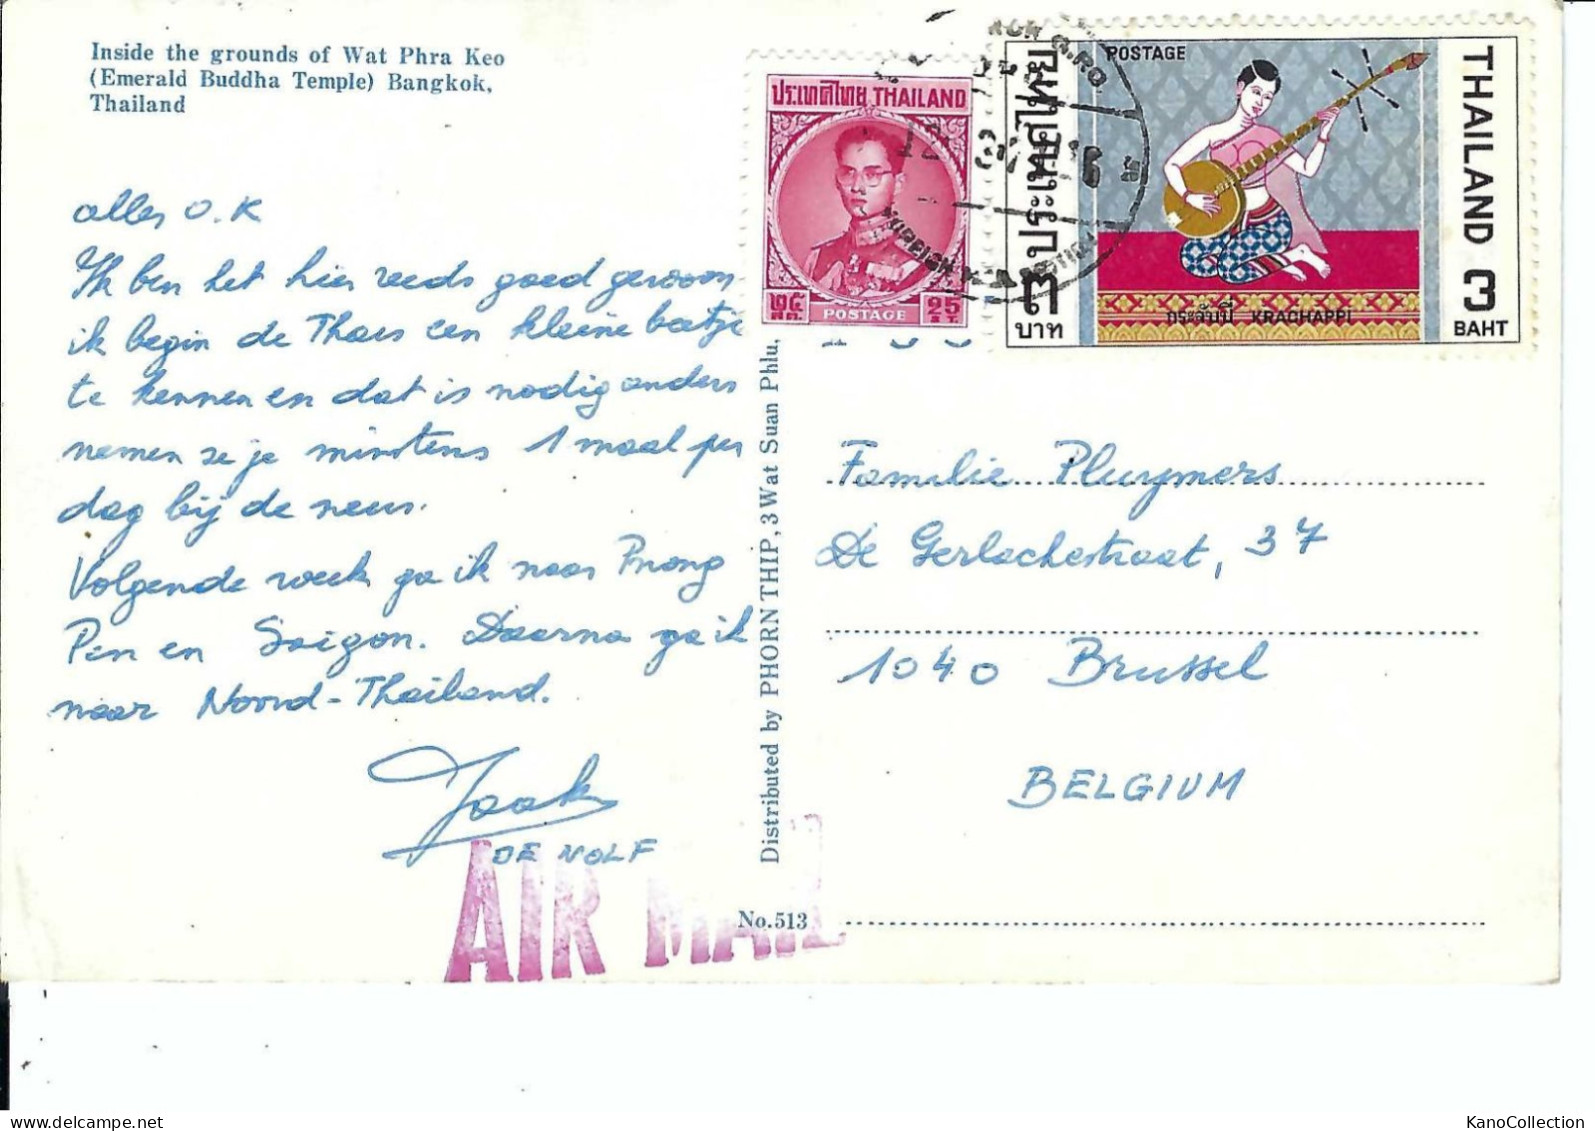 Inside the grounds of Wat Phra Keo
(Emerald Buddha Temple) Bangkok,
Thailand
alles O.K
Ik ben het hier reeds goed gewoon
ik begin de Thais een kleine beetje
te kennen en dat is nodig anders
nemen ze je minstens 1 maal per
dag bij de neus.
Volgende week ga ik naar Pnong
Pen en Saigon. Daarna ga ik
naar Noord-Thailand.
Jaak
DE NOLF
AIR MAIL
Distributed by PHORN THIP, 3 Wat Suan Phlu,
No.513
ประเทศไทย THAILAND
๒๕ 25
สต. POSTAGE ST.
POSTAGE
ประเทศไทย
๓
บาท
THAILAND
3
BAHT
กระจับปี่ KRACHAPPI
Familie Pluymers
De Gerlachestraat, 37
1040 Brussel
BELGIUM
KanoCollection